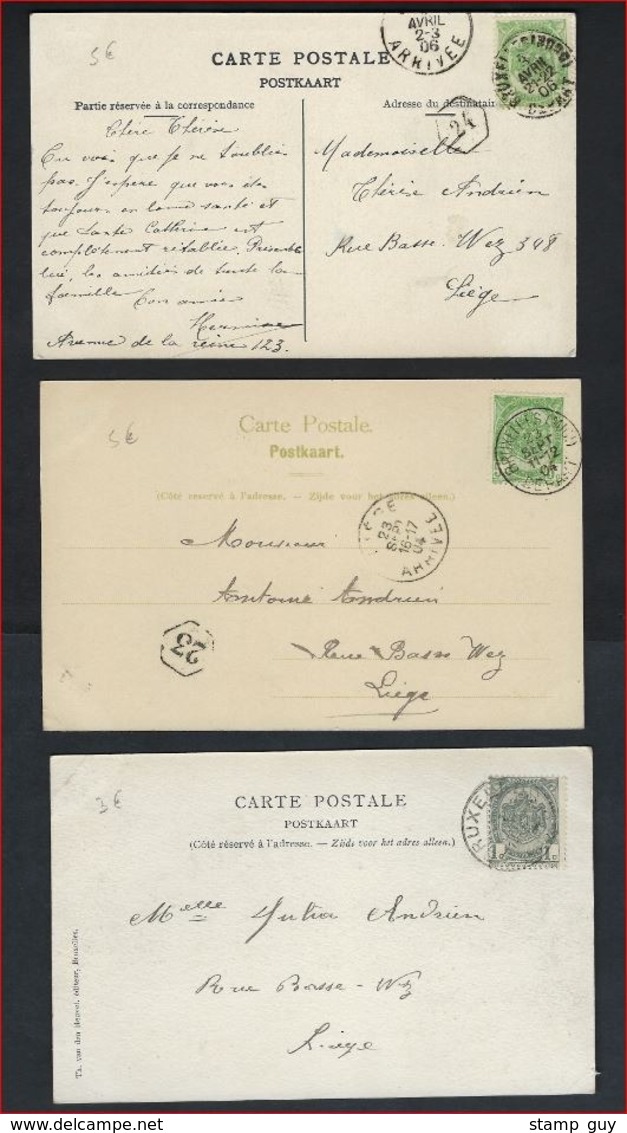 5€
AVRIL
2-3
06
ARRIVÉE
CARTE POSTALE
POSTKAART
AVRIL
06
DEPART
24
Partie réservée à la correspondance
Adresse du destinatair
Chère Thérèse
Tu vois que je ne t'oublie
pas. J'espère que vous êtes
toujours en bonne santé et
que Tante Catherine est
complètement rétablie.
les amitiés de toute la
famille
Ton amie
Hermine
Avenue de la reine 123.
Mademoiselle
Thérèse Andrien
Rue Basse-Wez 348
Liège
5€
Carte Postale.
Postkaart.
BRUXELLES
04
DEPART
(Côté réservé à l'adresse. – Zijde voor het adres alleen.)
23
SEPT
16-17
04
ARRIVEE
Monsieur
Antoine Andrien
Rue Basse Wez
Liège
23
3€
CARTE POSTALE
POSTKAART
(Côté réservé à l'adresse. — Zijde voor het adres alleen.)
RUXEL
1
1
Melle Andrien
Rue Basse-Wez
Liège
Th. van den Heuvel, éditeur, Bruxelles.
stamp guy